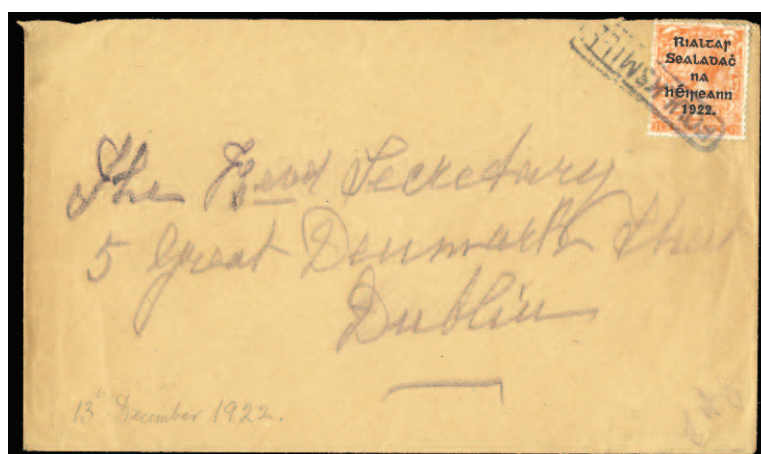 FOULKSMILLS
Rialtas
Sealadaċ
na
hÉireann
1922.
The Head Secretary
5 Great Denmark Street
Dublin
13th December 1922.